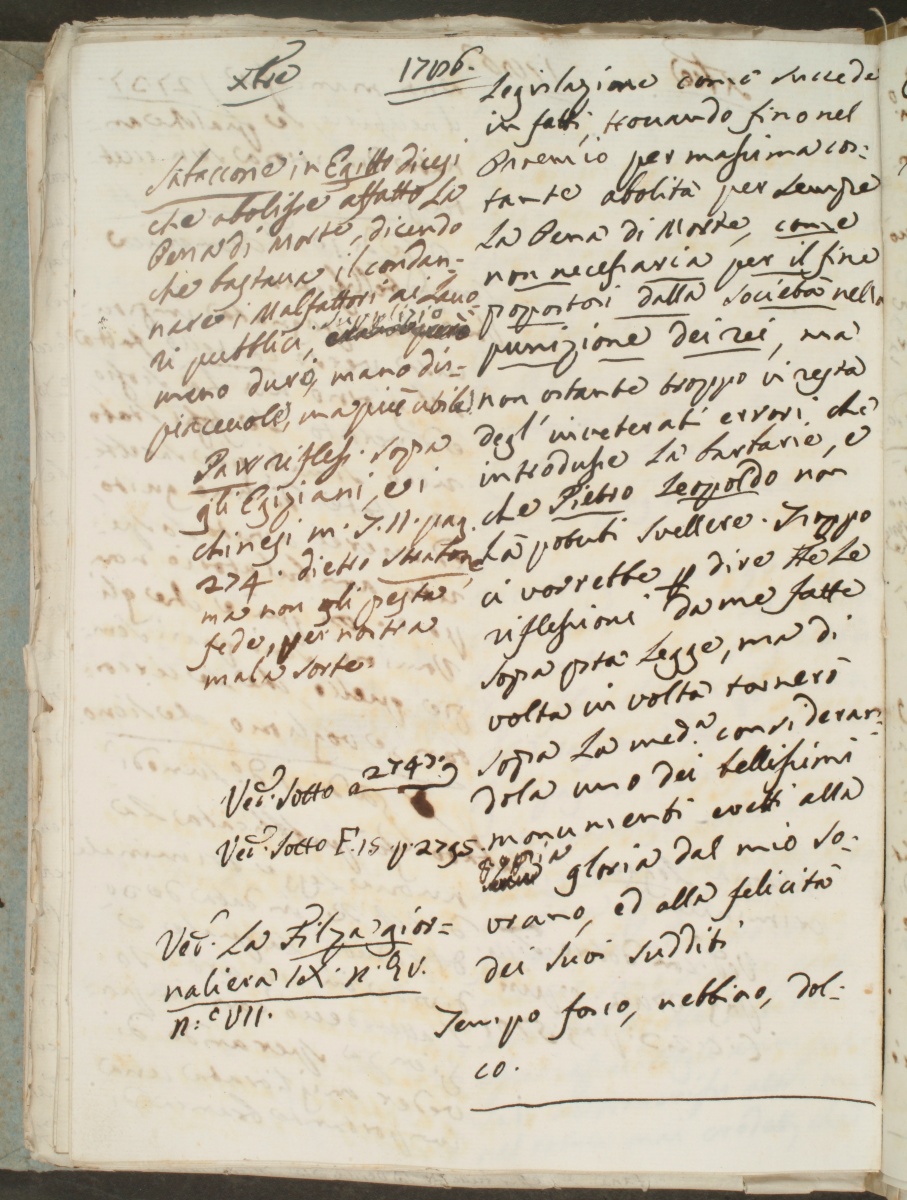 Xbre 1786.
Sabaccone in Egitto dicesi
che abolisse affatto La
Pena di Morte, dicendo
che bastava il condan-
nare i Malfattori ai Lavo-
ri pubblici, supplizio
meno duro, meno dis-
piacevole, ma più utile.
Paw rifless. sopra
gli Egiziani, e i
chinesi m. T. II. pag.
274. dietro Strabone
ma non gli presta
fede, per nostra
mala sorte.
Ved. Sotto a 2747.
Ved. Sotto F. 15 p. 2795.
Ved. La Filza gior-
naliera
n.° VII.
Legislazione come succede
in fatti, trovando fino nel
Proemio per massima cos-
tante abolita per sempre
La Pena di Morte, come
non necessaria per il fine
propostosi dalla società nella
punizione dei rei, ma
non ostante troppo vi resta
degl'inveterati errori che
introdusse la barbarie, e
che Pietro Leopoldo non
hà potuti svellere. Troppo
ci vorrebbe p dire tte Le
riflessioni da me fatte
sopra qsta Legge, ma di
volta in volta tornerò
sopra La meda. consideran-
dola uno dei bellissimi
monumenti eretti alla
propria gloria dal mio So-
vrano, ed alla felicità
dei suoi sudditi
Tempo fosco, nebbioso, dol-
co.